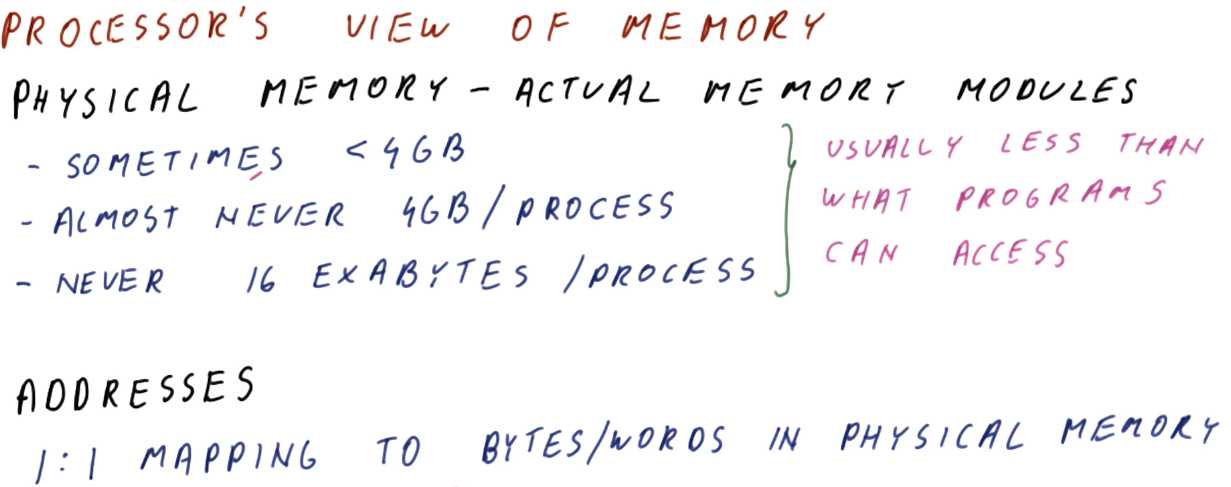 PROCESSOR'S VIEW OF MEMORY
PHYSICAL MEMORY - ACTUAL MEMORY MODULES
- SOMETIMES < 4GB
- ALMOST NEVER 4GB/PROCESS
- NEVER 16 EXABYTES /PROCESS
USUALLY LESS THAN
WHAT PROGRAMS
CAN ACCESS
ADDRESSES
1:1 MAPPING TO BYTES/WORDS IN PHYSICAL MEMORY